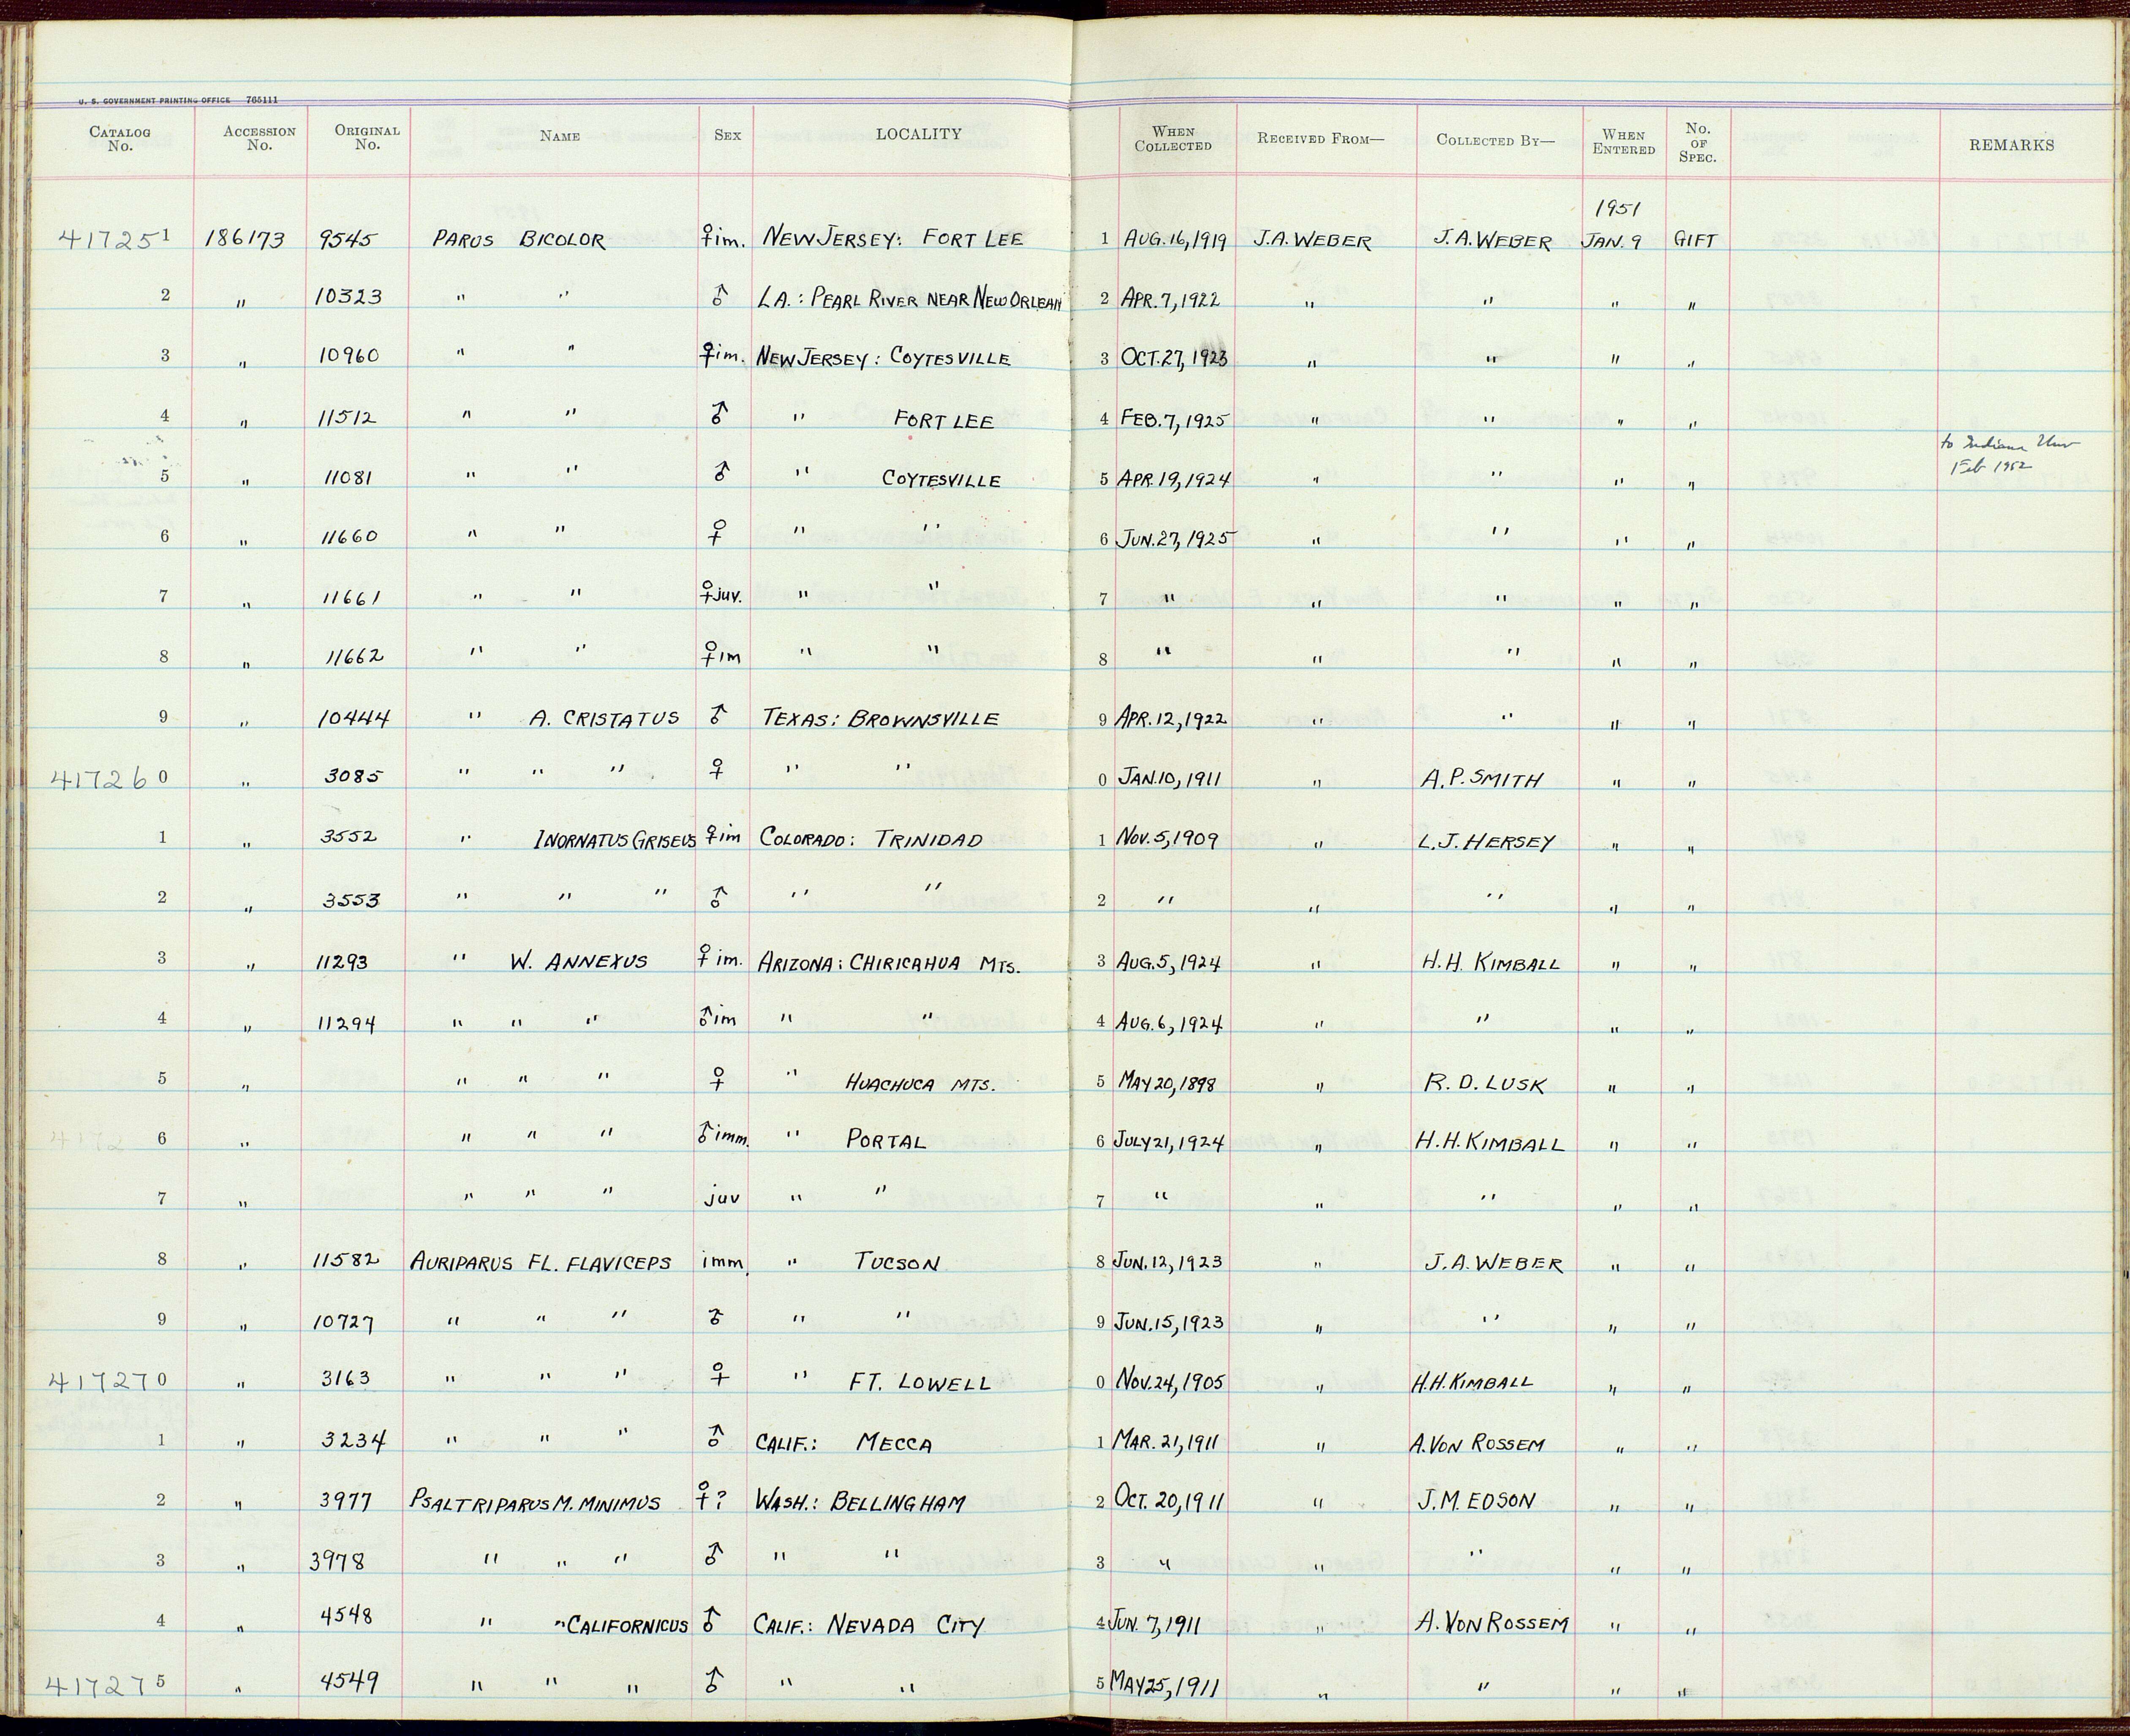 U. S. GOVERNMENT PRINTING OFFICE 765111
CATALOG No. ACCESSION No. ORIGINAL No. NAME SEX LOCALITY WHEN COLLECTED RECEIVED FROM— COLLECTED BY— WHEN ENTERED No. OF SPEC. REMARKS
1951
417251 186173 9545 PARUS BICOLOR ♀im. NEW JERSEY: FORT LEE 1 AUG. 16, 1919 J.A. WEBER J.A. WEBER JAN. 9 GIFT
2 " 10323 " " ♂ LA.: PEARL RIVER NEAR NEW ORLEAN 2 APR. 7, 1922 " " " "
3 " 10960 " " ♀im. NEW JERSEY: COYTESVILLE 3 OCT. 27, 1923 " " " "
4 " 11512 " " ♂ " FORT LEE 4 FEB. 7, 1925 " " " "
to Indiana Univ
5 " 11081 " " ♂ " COYTESVILLE 5 APR. 19, 1924 " " " " Feb 1952
6 " 11660 " " ♀ " " 6 JUN. 27, 1925 " " " "
7 " 11661 " " ♀juv. " " 7 " " " " "
8 " 11662 " " ♀im " " 8 " " " " "
9 " 10444 " A. CRISTATUS ♂ TEXAS: BROWNSVILLE 9 APR. 12, 1922 " " " "
417260 " 3085 " " " ♀ " " 0 JAN. 10, 1911 " A. P. SMITH " "
1 " 3552 " INORNATUS GRISEUS ♀im COLORADO: TRINIDAD 1 NOV. 5, 1909 " L. J. HERSEY " "
2 " 3553 " " " ♂ " " 2 " " " " "
3 " 11293 " W. ANNEXUS ♀im. ARIZONA: CHIRICAHUA MTS. 3 AUG. 5, 1924 " H. H. KIMBALL " "
4 " 11294 " " " ♂im " " 4 AUG. 6, 1924 " " " "
5 " " " " ♀ " HUACHUCA MTS. 5 MAY 20, 1898 " R. D. LUSK " "
4172 6 " " " " ♂imm. " PORTAL 6 JULY 21, 1924 " H. H. KIMBALL " "
7 " " " " juv " " 7 " " " " "
8 " 11582 AURIPARUS FL. FLAVICEPS imm. " TUCSON 8 JUN. 12, 1923 " J. A. WEBER " "
9 " 10727 " " " ♂ " " 9 JUN. 15, 1923 " " " "
417270 " 3163 " " " ♀ " FT. LOWELL 0 NOV. 24, 1905 " H. H. KIMBALL " "
1 " 3234 " " " ♂ CALIF.: MECCA 1 MAR. 21, 1911 " A. VON ROSSEM " "
2 " 3977 PSALTRIPARUS M. MINIMUS ♀? WASH.: BELLINGHAM 2 OCT. 20, 1911 " J. M. EDSON " "
3 " 3978 " " " ♂ " " 3 " " " " "
4 " 4548 " " CALIFORNICUS ♂ CALIF.: NEVADA CITY 4 JUN. 7, 1911 " A. VON ROSSEM " "
417275 " 4549 " " " ♂ " " 5 MAY 25, 1911 " " " "